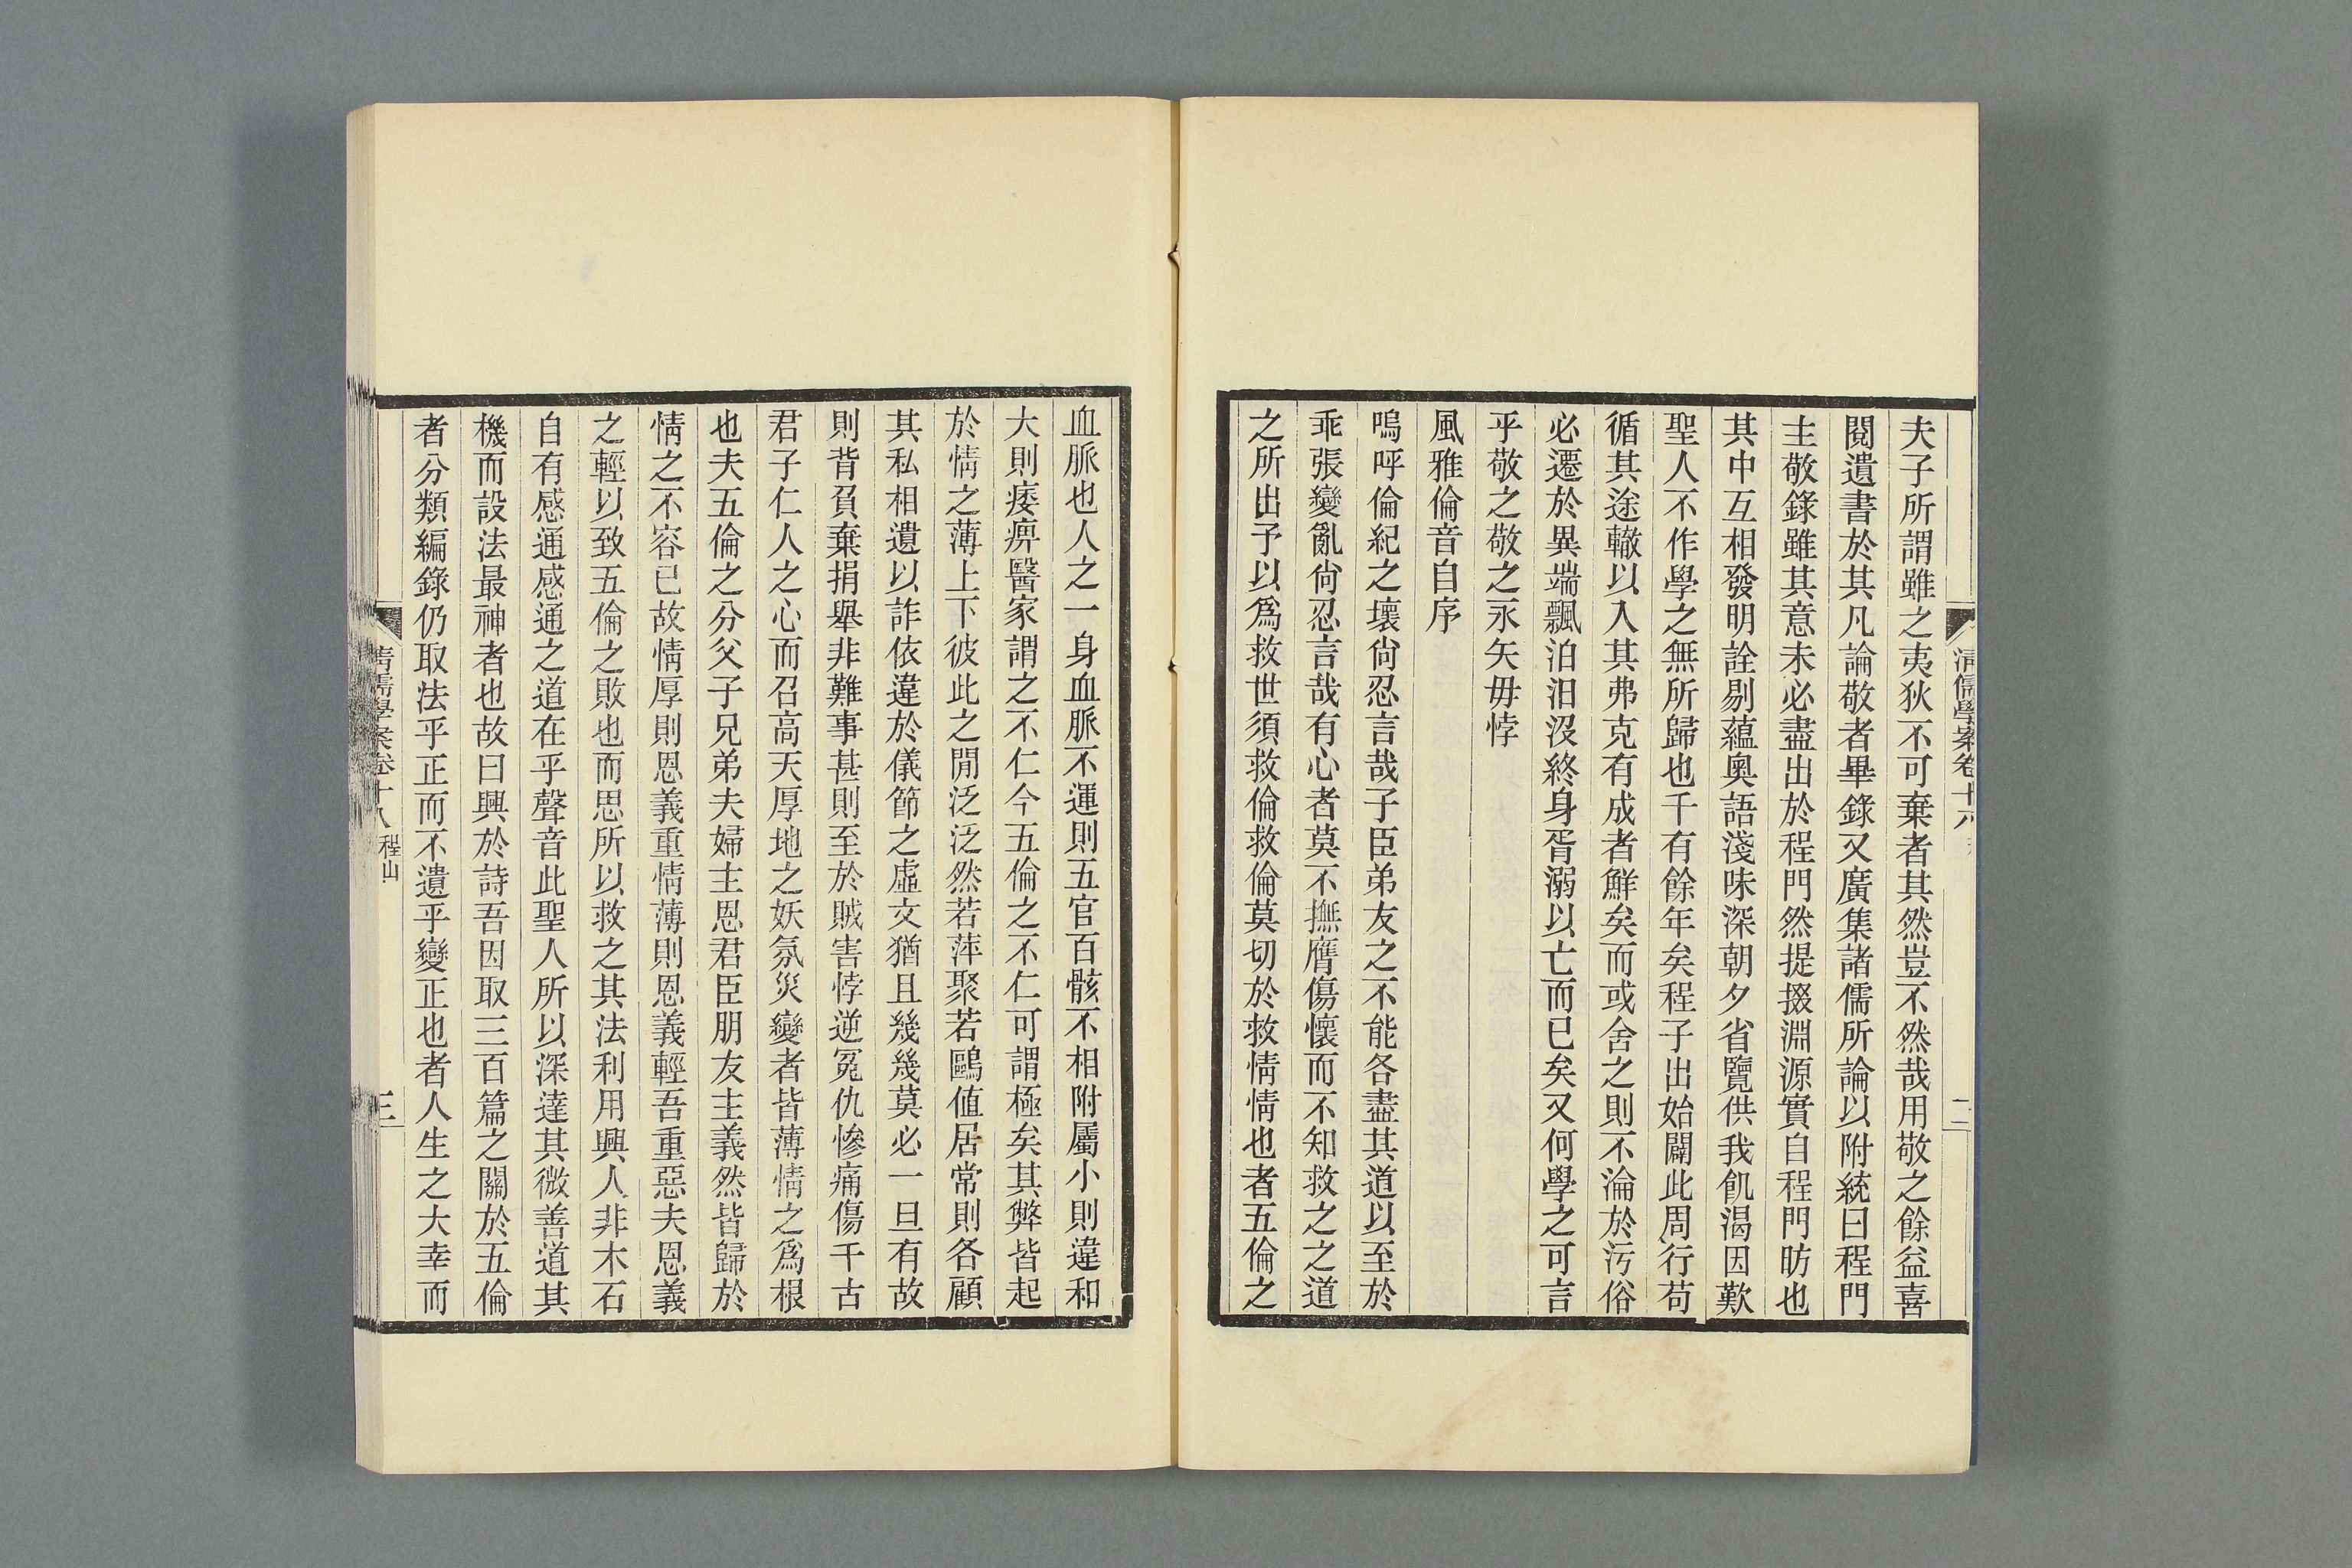 清儒學案卷十八
二
夫子所謂雖之夷狄不可棄者其然豈不然哉用敬之餘益喜
閱遺書於其凡論敬者畢錄又廣集諸儒所論以附統曰程門
主敬錄雖其意未必盡出於程門然提掇淵源實自程門昉也
其中互相發明詮剔蘊奧語淺味深朝夕省覽供我飢渴因歎
聖人不作學之無所歸也千有餘年矣程子出始闢此周行苟
循其途轍以入其弗克有成者鮮矣而或舍之則不淪於污俗
必遷於異端飄泊汨沒終身胥溺以亡而已矣又何學之可言
乎敬之敬之永矢毋悖
風雅倫音自序
嗚呼倫紀之壞尙忍言哉子臣弟友之不能各盡其道以至於
乖張變亂尙忍言哉有心者莫不撫膺傷懷而不知救之之道
之所出予以爲救世須救倫救倫莫切於救情情也者五倫之
血脈也人之一身血脈不運則五官百骸不相附屬小則違和
大則痿痹醫家謂之不仁今五倫之不仁可謂極矣其弊皆起
於情之薄上下彼此之閒泛泛然若萍聚若鷗値居常則各顧
其私相遺以詐依違於儀節之虛文猶且幾幾莫必一旦有故
則背負棄捐舉非難事甚則至於賊害悖逆冤仇慘痛傷千古
君子仁人之心而召高天厚地之妖氛災變者皆薄情之爲根
也夫五倫之分父子兄弟夫婦主恩君臣朋友主義然皆歸於
情之不容已故情厚則恩義重情薄則恩義輕吾重惡夫恩義
之輕以致五倫之敗也而思所以救之其法利用興人非木石
自有感通感通之道在乎聲音此聖人所以深達其微善道其
機而設法最神者也故曰興於詩吾因取三百篇之關於五倫
者分類編錄仍取法乎正而不遺乎變正也者人生之大幸而
清儒學案卷十八 程山
三